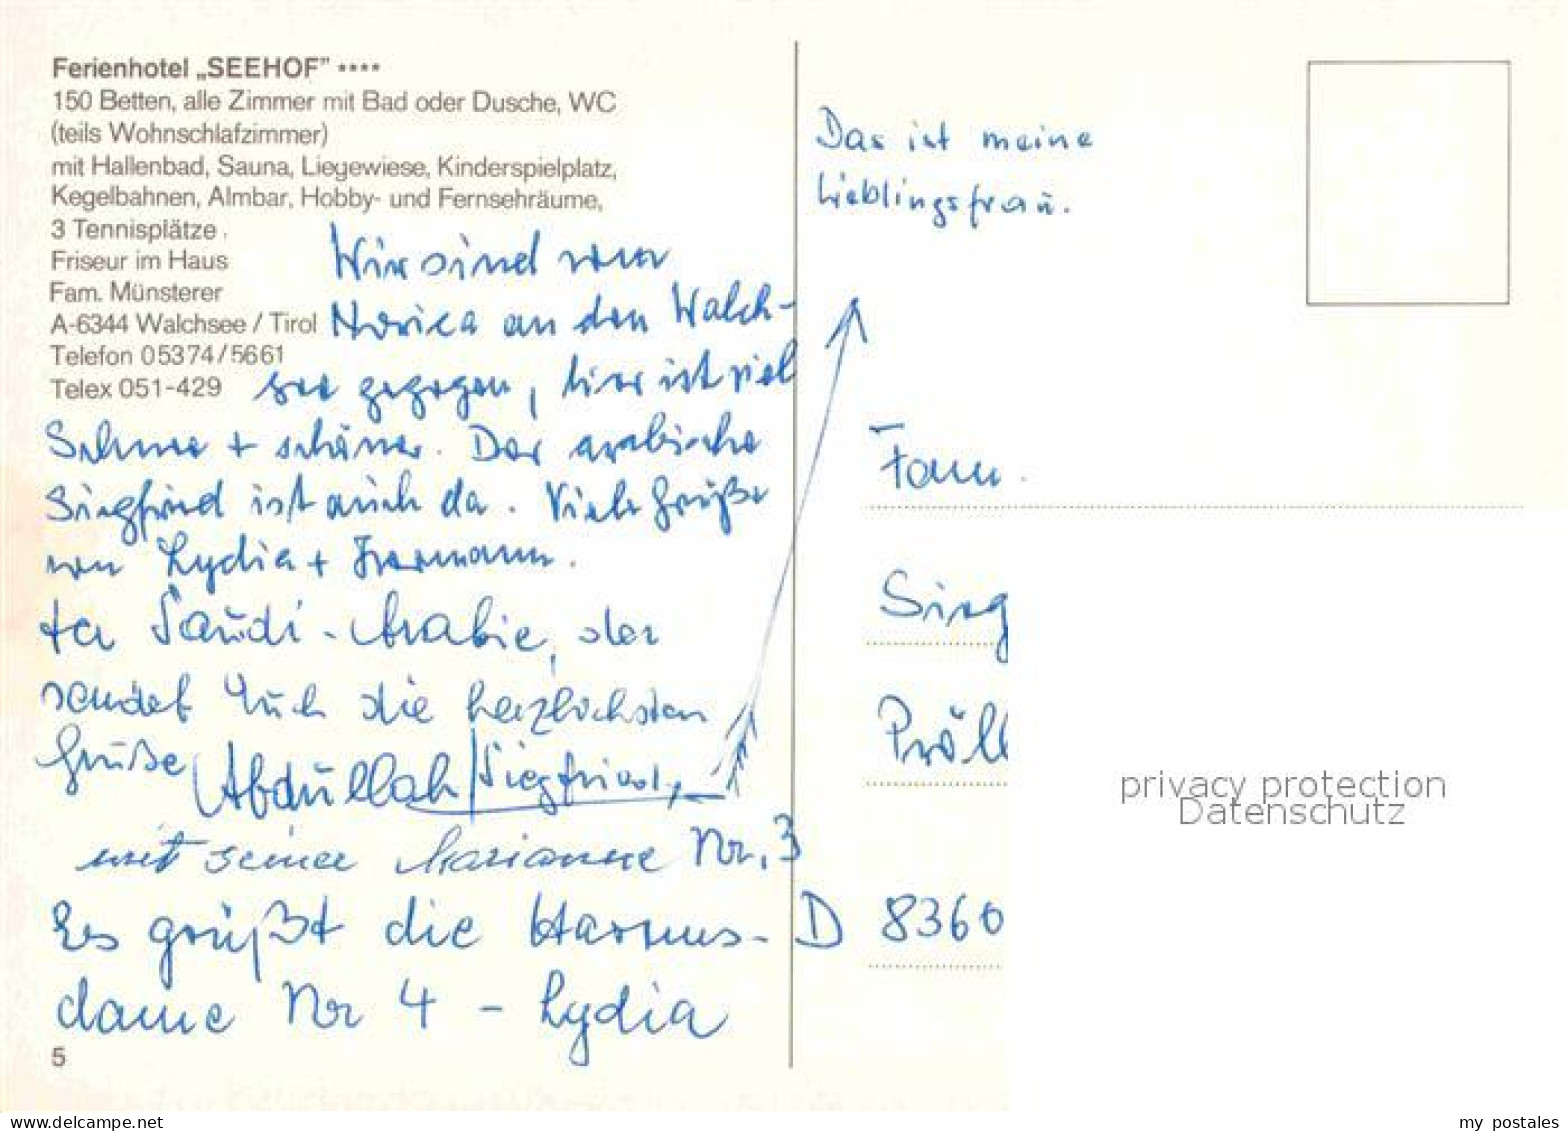 Ferienhotel „SEEHOF" ****
150 Betten, alle Zimmer mit Bad oder Dusche, WC
(teils Wohnschlafzimmer)
mit Hallenbad, Sauna, Liegewiese, Kinderspielplatz,
Kegelbahnen, Almbar, Hobby- und Fernsehräume,
3 Tennisplätze
Friseur im Haus
Fam. Münsterer
A-6344 Walchsee / Tirol
Telefon 05374/5661
Telex 051-429
Wir sind von
Norica an den Walch-
see gezogen, hier ist viel
Schnee + schöner. Der arabische
Siegfried ist auch da. Viele Grüße
von Lydia + Hermann.
ter Saudi-Arabie, der
sendet Euch die herzlichsten
Grüße Abdullah/Siegfried,
mit seiner Marianne Nr. 3
Es grüßt die Harems-
dame Nr 4 - Lydia
5
Das ist meine
Lieblingsfrau.
Fam.
Sieg
Pröll
D 8360
privacy protection
Datenschutz
www.delcampe.net
my_postales